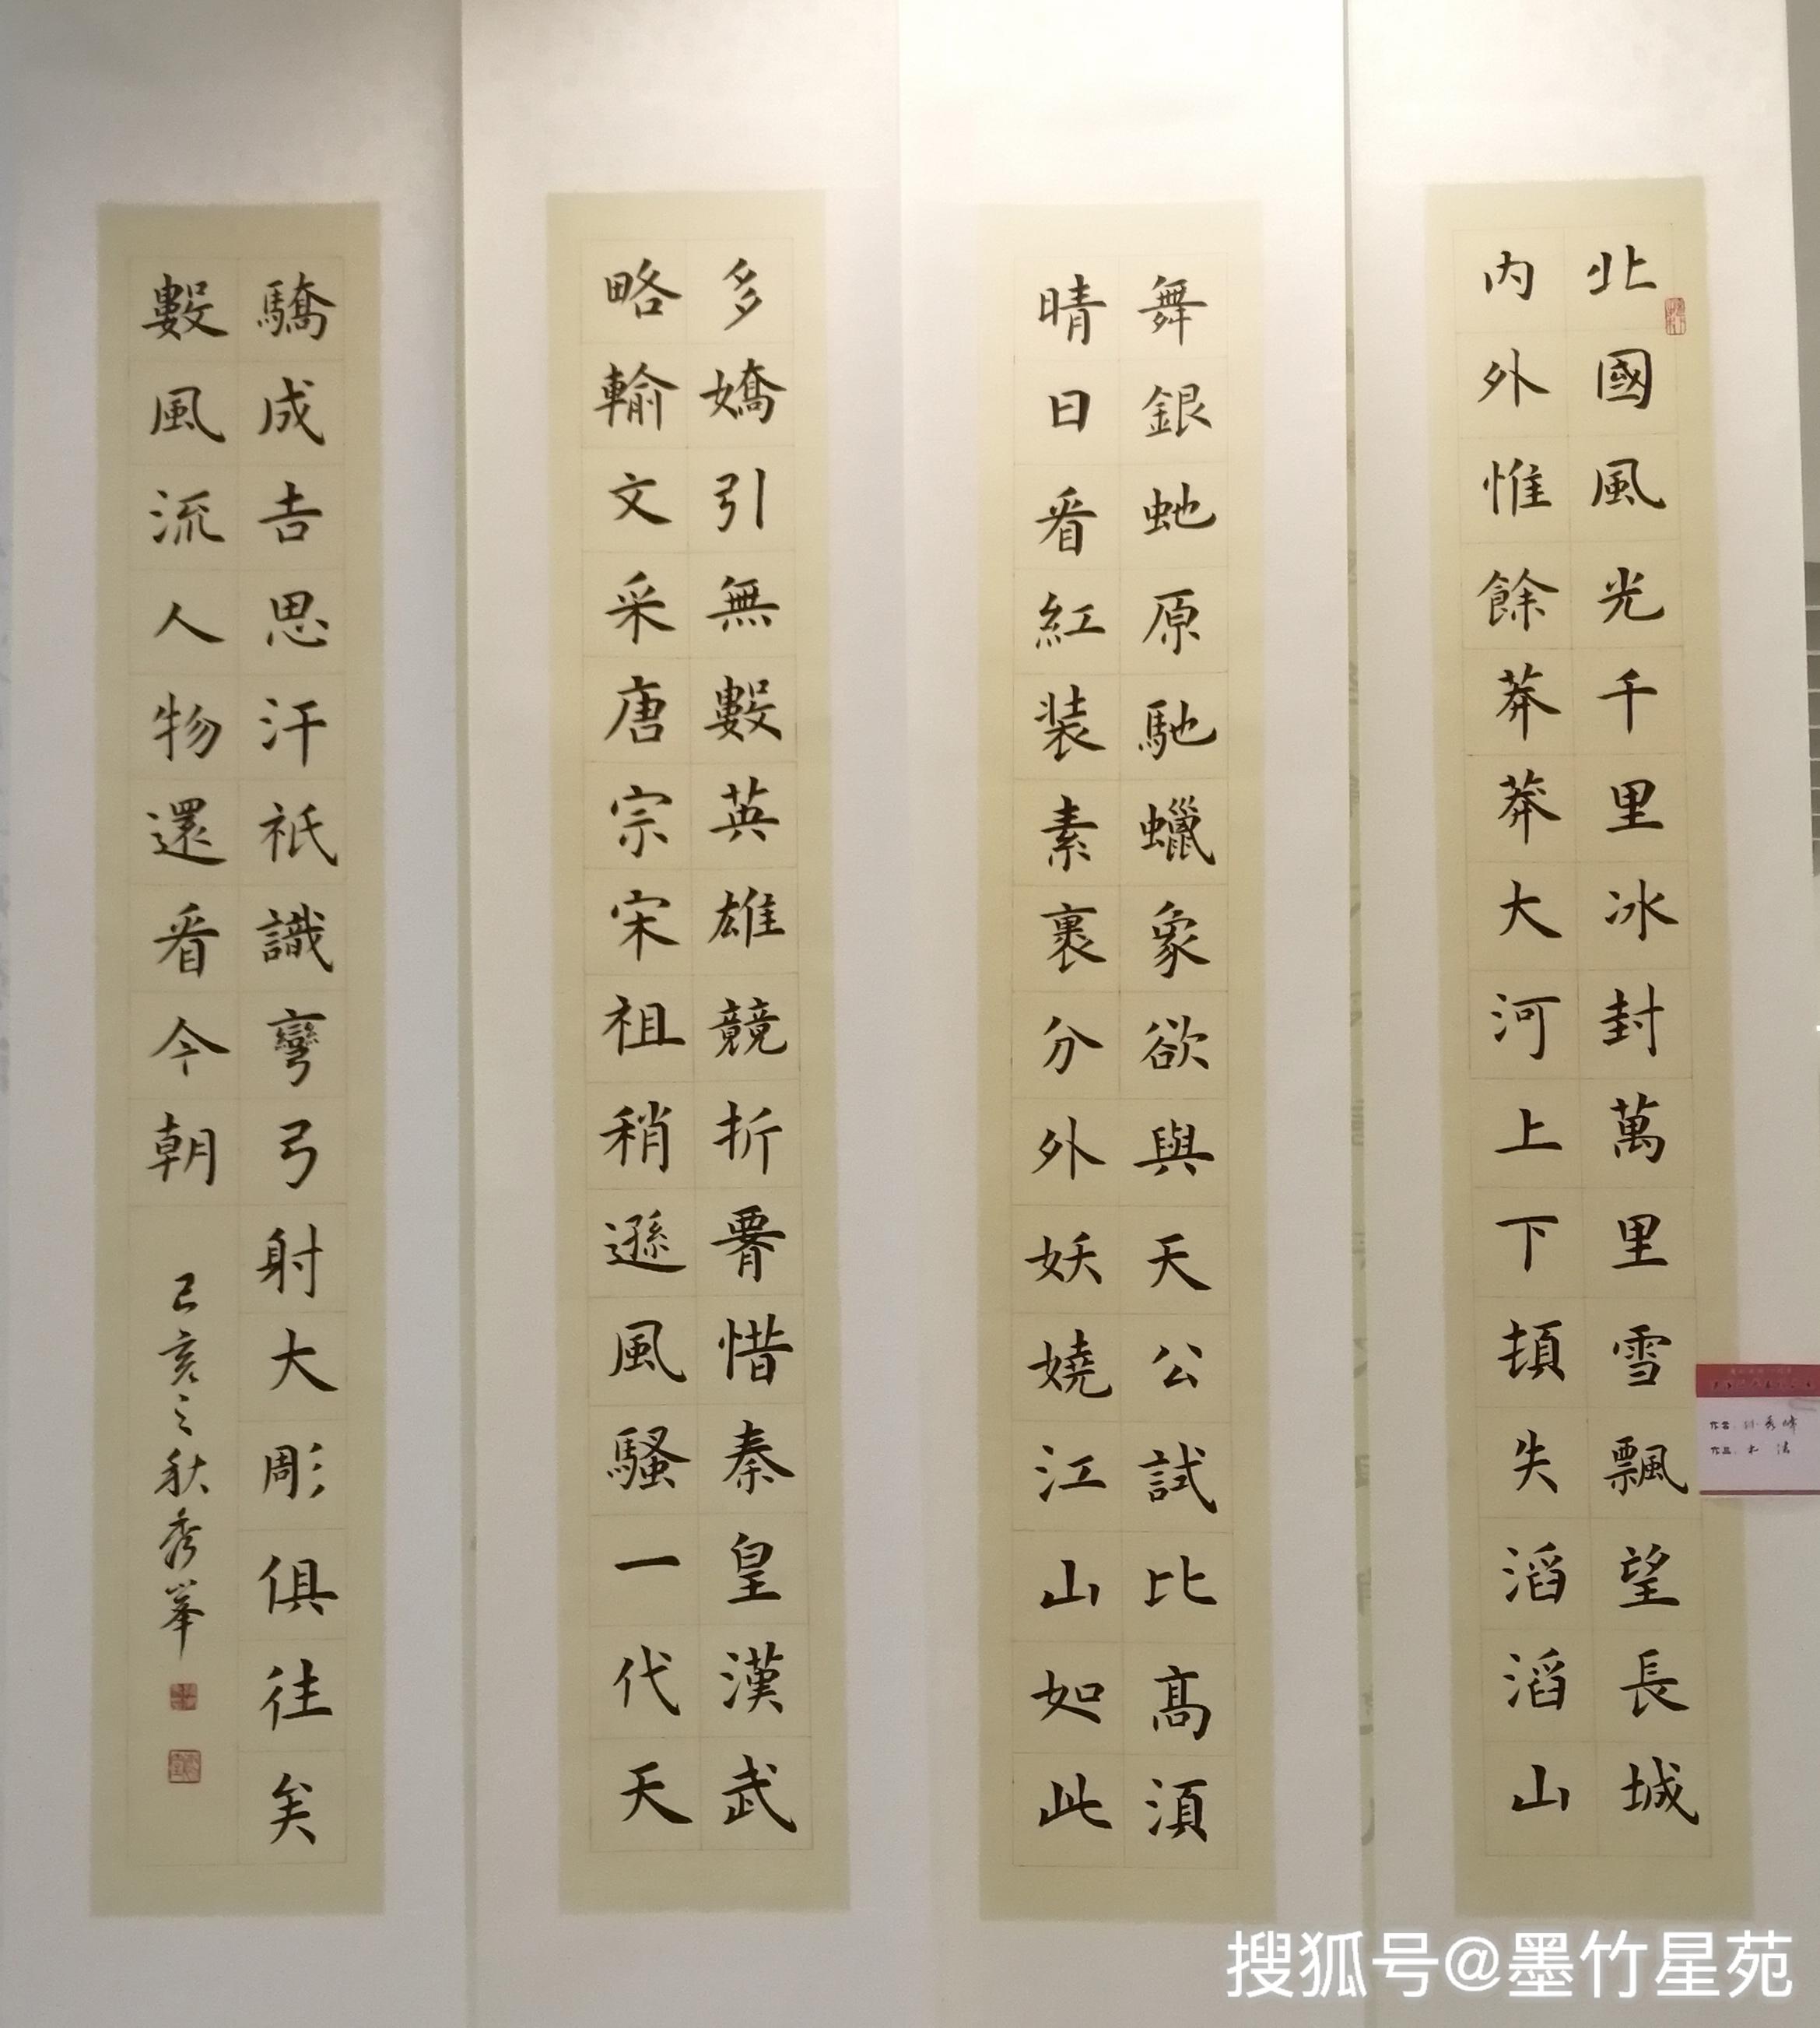 北國風光千里冰封萬里雪飄望長城
内外惟餘莽莽大河上下頓失滔滔山
舞銀虵原馳蠟象欲與天公試比髙湏
晴日看紅装素裹分外妖嬈江山如此
多嬌引無數英雄競折署惜秦皇漢武
略輸文采唐宗宋祖稍遜風騷一代天
驕成吉思汗衹識彎弓射大彫俱往矣
數風流人物還看今朝
己亥之秋秀峯
搜狐号@墨竹星苑